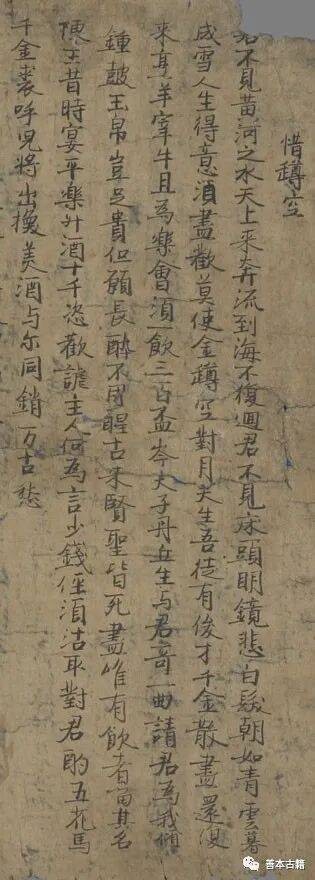 惜罇空
君不見黃河之水天上來奔流到海不復迴君不見床頭明鏡悲白髮朝如青雲暮
成雪人生得意須盡歡莫使金罇空對月天生吾徒有俊才千金散盡還復
來烹羊宰牛且為樂會須一飲三百盃岑夫子丹丘生与君哥一曲請君為我傾
鍾皷玉帛豈足貴但願長醉不用醒古來賢聖皆死盡唯有飲者留其名
陳王昔時宴平樂斗酒十千恣歡謔主人何為言少錢徑須沽取對君酌五花馬
千金裘呼兒將出換美酒与尓同銷万古愁
善本古籍